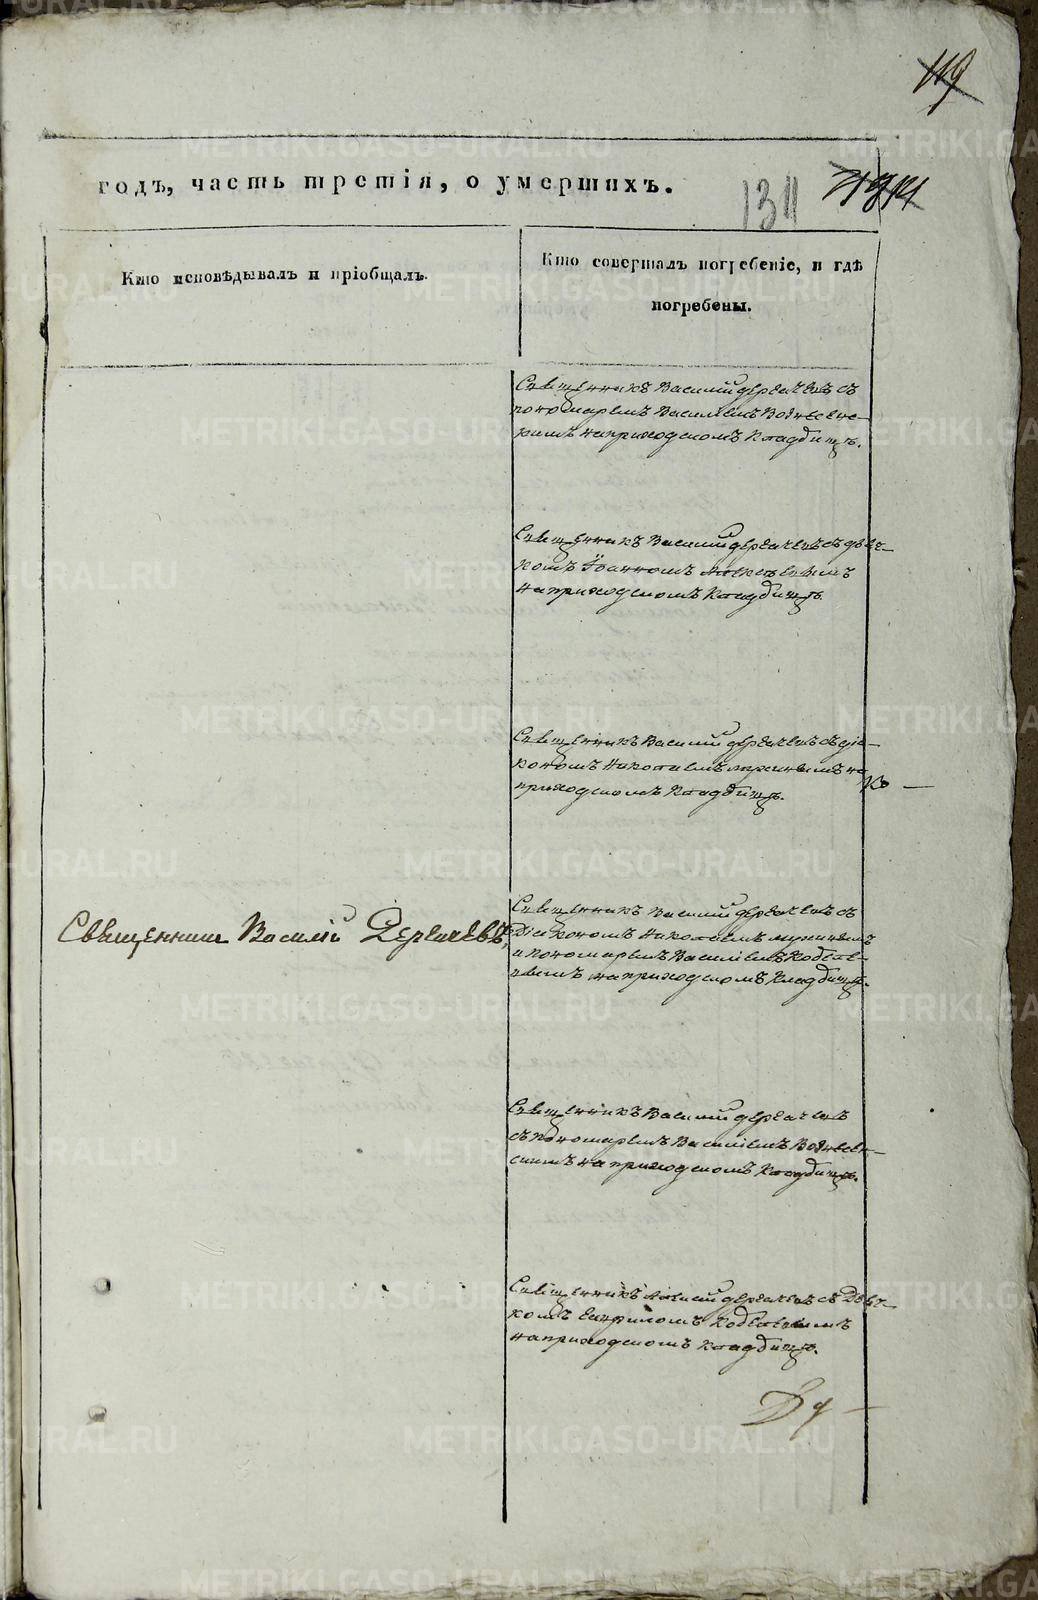 119
годъ, часть третія, о умершихъ.
131
Кто исповѣдывалъ и пріобщалъ.
Кто совершалъ погребеніе, и гдѣ
погребены.
Священникъ Василий Дергачевъ съ
пономаремъ Василіемъ Вознесенс-
кимъ на приходскомъ кладбищѣ.
Священникъ Василий Дергачевъ съ дьяч-
комъ Іоанномъ
на приходскомъ кладбищѣ.
Священникъ Василий Дергачевъ съ діа-
кономъ Николаемъ на
приходскомъ кладбищѣ.
Священникъ Василій Дергачевъ
Священникъ Василий Дергачевъ съ
Діакономъ Николаемъ
и пономаремъ Василіемъ
на приходскомъ кладбищѣ.
Священникъ Василий Дергачевъ
съ пономаремъ Василіемъ Вознесен-
скимъ на приходскомъ кладбищѣ.
Священникъ Василий Дергачевъ съ Дьяч-
комъ
на приходскомъ кладбищѣ.
METRIKI.GASO-URAL.RU